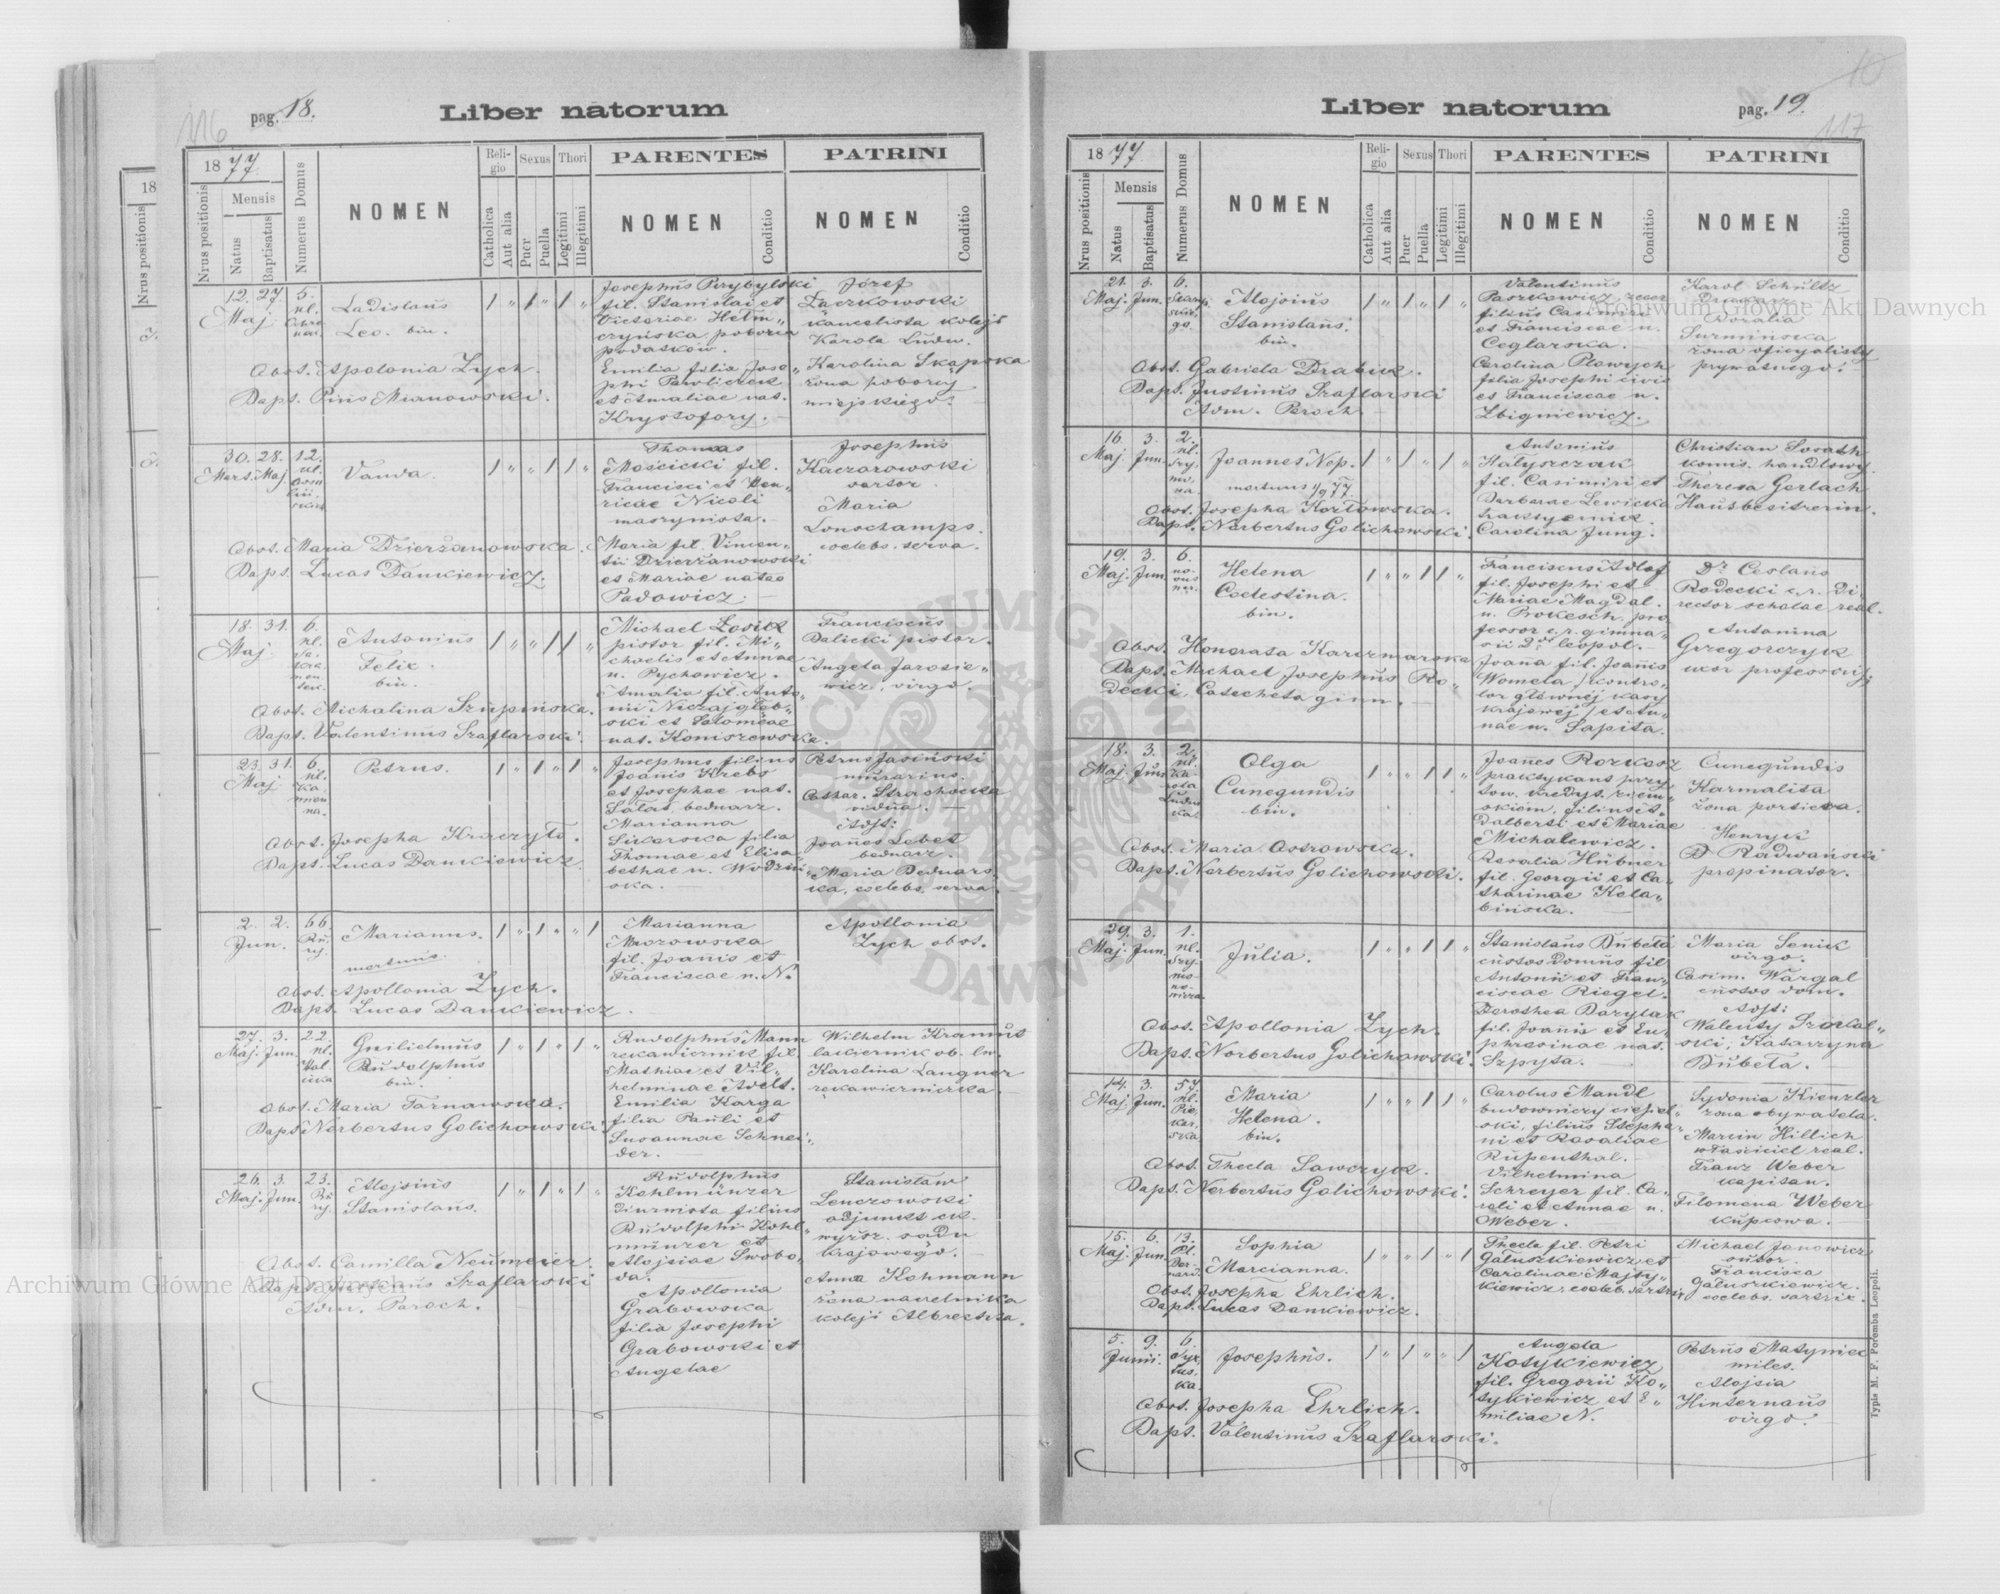 116
pag. 18.
Liber natorum
1877.
Nrus positionis
Mensis
Natus
Baptisatus
Numerus Domus
NOMEN
Religio
Catholica
Aut alia
Sexus
Puer
Puella
Thori
Legitimi
Illegitimi
PARENTES
NOMEN
Conditio
PATRINI
NOMEN
Conditio
12. 27. 5.
Maj ul.
Ladislaus
Leo. bin.
Obst. Apolonia Zych.
Bapt. Pius Mianowski.
Josephus Przybylski
fil. Stanislai et
Victoriae Hetm„
czyńska poborca
podatków.
Emilia filia Jose„
phi Pawliczek
et Amaliae nat.
Krystofory.
Józef
Łaczkowski
kancelista koleji
Karola Ludw.
Karolina Skąpska
żona poborcy
miejskiego.
30. 28. 12.
Mart. Maj. ul.
Vanda.
Obst. Maria Dzierżanowska.
Bapt. Lucas Dankiewicz.
Thomas
Mościcki fil.
Francisci et Hen„
ricae Nicoli
maszynista.
Maria fil. Vincen„
tii Dzierżanowski
et Mariae natae
Padowicz.
Josephus
Kaczorowski
sartor.
Maria
Lonschamps.
coelebs. serva.
18. 31. 6.
Maj. ul.
Antonius
Felix.
bin.
Obst. Michalina Szupińska.
Bapt. Valentinus Szaflarski.
Michael Łosik
pistor fil. Mi„
chaelis et Annae
n. Pychowicz.
Amalia fil. Anto„
nii Niezajgłęb„
ski et Salomeae
nat. Koniszewska.
Franciscus
Balicki pistor.
Angela Jarosie„
wicz, virgo.
23. 31. 6.
Maj ul.
Ka„
mien
na.
Petrus.
Obst. Josepha Kraczyło.
Bapt. Lucas Dankiewicz
Josephus filius
Joanis Krebs
et Josephae nat.
Sałat bednarz.
Marianna
Sikorska filia
Thomae et Elisa„
bethae n. Wodziń„
ska.
Petrus Jasiński
murarius.
Cathar. Strachocka
vidua.
Adst:
Joanes Lebet
bednarz.
Maria Bednars„
ka, coelebs. serva.
2. 2. 66.
Jun. Ru
ry.
Marianus.
mortuus.
Obst. Apollonia Zych.
Bapt. Lucas Dankiewicz.
Marianna
Mrozowska
fil. Joanis et
Franciscae n. N.
Apollonia
Zych obst.
27. 3. 22.
Maj. Jun. ul.
Hal
icka
Guilielmus
Rudolphus
bin.
Obst. Maria Tarnawska.
Bapt. Norbertus Golichowski.
Rudolphus Mann
rekawicznik fil.
Mathiae et Vil„
helminae Adelt.
Emilia Karga
filia Pauli et
Susannae Schnei„
der.
Wilhelm Kramus
lakiernik ob. lw.
Karolina Laugner
rekawiczniczka.
26. 3. 23.
Maj. Jun. Ru
ry.
Alojsius
Stanislaus.
Obst. Camilla Neumeier.
Bapt. Justinus Szaflarski
Adm. Paroch.
Rudolphus
Kohlmünzer
Diurnista filius
Rudolphi Kohl„
münzer et
Alojsiae Swobo„
da.
Apollonia
Grabowska
filia Josephi
Grabowski et
Angelae
Stanisław
Lenczowski
adjunkt ck.
wyższ. sadu
krajowego.
Anna Hohmann
żona naczelnika
koleji Albrechta.
10
117
Liber natorum
pag. 19.
1877.
Nrus positionis
Mensis
Natus
Baptisatus
Numerus Domus
NOMEN
Religio
Catholica
Aut alia
Sexus
Puer
Puella
Thori
Legitimi
Illegitimi
PARENTES
NOMEN
Conditio
PATRINI
NOMEN
Conditio
21. 3. 6.
Maj. Jun.
Alojsius
Stanislaus.
bin.
Obst. Gabriela Drabik.
Bapt. Justinus Szaflarski
Adm. Paroch.
Valentinus
Paszkowicz
filius Casimiri
et Franciscae n.
Ceglarska.
Carolina Pławych
filia Josephi civis
et Franciscae n.
Zbigniewicz.
Karol Schultz
Drukarz.
Rosalia
Surmińska
żona oficyalisty
prywatnego.
16. 3. 2.
Maj. Jun. ul.
Joannes Nep.
mortuus
Obst. Josepha Kozłowska.
Bapt. Norbertus Golichowski.
Antonius
Hałyszczak
fil. Casimiri et
Barbarae Lewicka
traktyernik.
Carolina Jung.
Christian Sorath
komis. handlowy.
Theresa Gerlach
Hausbesitzerin.
19. 3. 6.
Maj. Jun.
Helena
Coelestina.
bin.
Obst. Honorata Karczmarska
Bapt. Michael Josephus Ro„
decki, Catecheta gimn.
Franciscus Adlof
fil. Josephi et
Mariae Magdal.
n. Prokesch, pro
fessor c.r. gimna„
sii 2di leopol.
Joana fil. Joanis
Womela /kontro„
lor głównej kasy
krajowej/ et An„
nae n. Sapita.
Dr. Ceslaus
Rodecki c.r. Di„
rector scholae real.
Antonina
Grzegorczyk
uxor professorij.
18. 3. 2.
Maj Jun ul.
Ka„
rola
Ludwi
ka.
Olga
Cunegundis
bin.
Obst. Maria Ostrowska.
Bapt. Norbertus Golichowski.
Joanes Rozkosz
praktykant przy
tow. kredyt. ziem„
skiem, filius A„
dalberti et Mariae
Michalewicz.
Rosalia Hübner
fil. Georgii et Ca„
tharinae Kela„
bińska.
Cunegundis
Karmalita
żona portiera.
Henryk
D Radwański
propinator.
29. 3. 1.
Maj. Jun. ul.
Szy„
mo
no„
wicza.
Julia.
Obst. Apollonia Zych.
Bapt. Norbertus Golichowski.
Stanislaus Dubela
custos Domus fil
Antonii et Fran„
ciscae Riegel.
Dorothea Bazylak
fil. Joanis et Eu„
phrosinae nat.
Szpyta.
Maria Seniuk
virgo.
Casim. Wargal
custos dom.
Adst:
Walenty Szokal„
ski, Katarzyna
Dubela.
14. 3. 57.
Maj. Jun. ul.
Pie„
kar„
ska
Maria
Helena.
bin.
Obst. Thecla Sawczyk.
Bapt. Norbertus Golichowski.
Carolus Mandl
budowniczy ciesiel„
ski, filius Stepha„
ni et Rosaliae
Rupenthal.
Vilhelmina
Schreyer fil. Ca„
roli et Annae n.
Weber.
Sydonia Kienzler
żona obywatela.
Marcin Hillich
właściciel real.
Franz Weber
kapitan.
Filomena Weber
kupcowa.
15. 6. 13.
Maj. Jun. Pl.
Ber
nard.
Sophia
Marcianna.
Obst. Josepha Ehrlich.
Bapt. Lucas Dankiewicz.
Thecla fil. Petri
Gałuszkiewicz et
Carolinae Majty„
kiewicz, coeleb. sartrix
Michael Janowicz
sutor.
Francisca
Gałuszkiewicz.
coelebs. sartrix.
5. 9. 6.
Junii. Syx„
tus„
ka.
Josephus.
Obst. Josepha Ehrlich.
Bapt. Valentinus Szaflarski.
Angela
Kotykiewicz
fil. Gregorii Ko„
tykiewicz et E„
miliae N.
Petrus Matyniec
miles.
Alojsia
Hinternaus
virgo.
Typis M. F. Poremba Leopoli.
Archiwum Główne Akt Dawnych
Archiwum Główne Akt Dawnych
ARCHIWUM GŁÓWNE AKT DAWNYCH